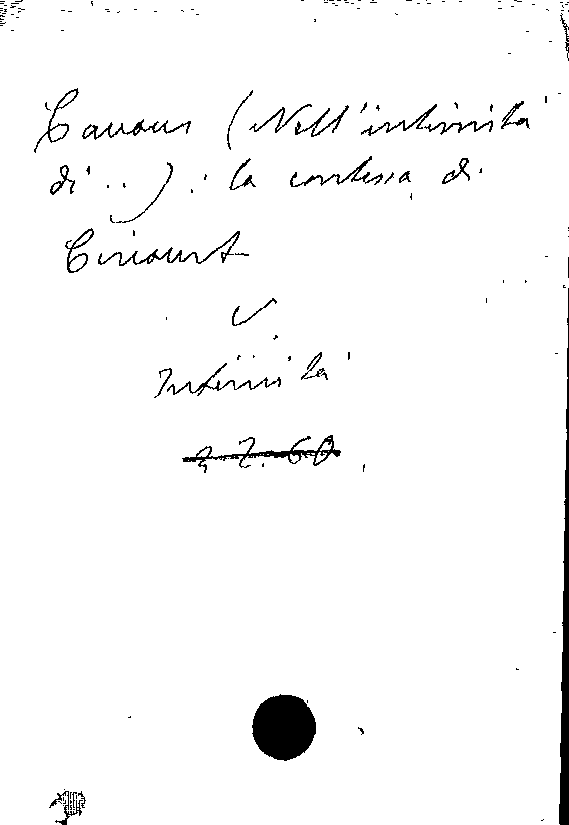 Cavour (Nell'intimità
di ..) : la contessa di
Circourt
v.
Intimità